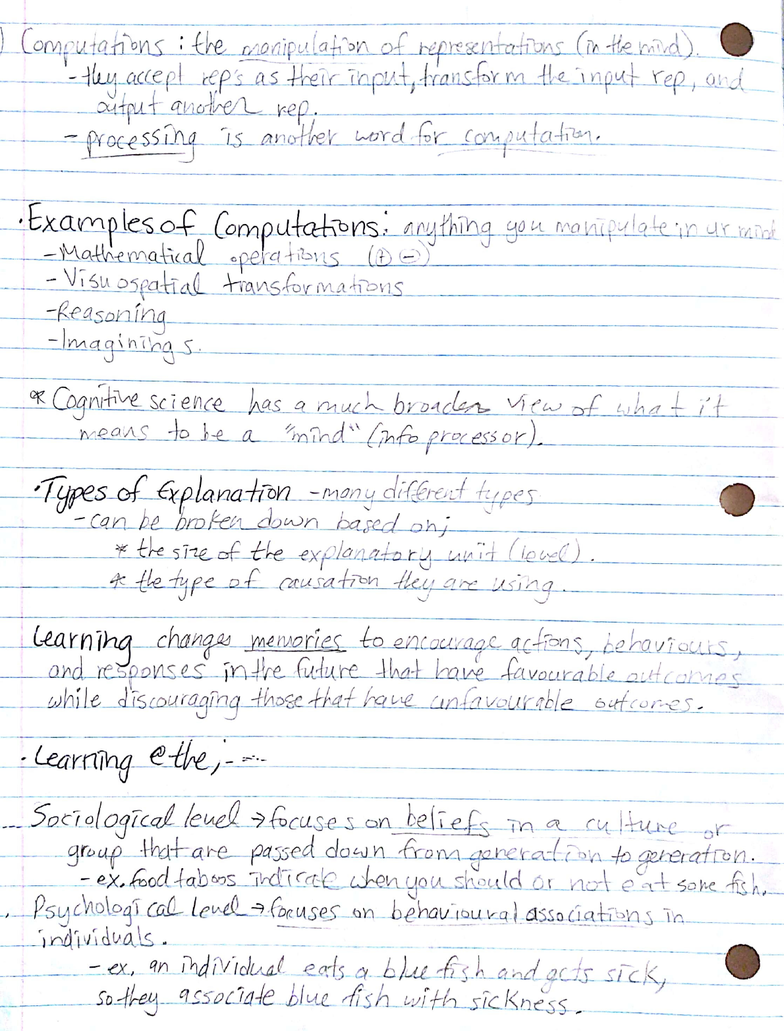 ) Computations : the manipulation of representations (in the mind).
- they accept rep's as their input, transform the input rep, and
output another rep.
- processing is another word for computation.
• Examples of Computations: anything you manipulate in ur mind
- Mathematical operations (+ -)
- Visuospatial transformations
- Reasoning
- Imaginings.
* Cognitive science has a much broader view of what it
means to be a "mind" (info processor).
• Types of Explanation - many different types
- can be broken down based on;
* the size of the explanatory unit (level).
* the type of causation they are using.
Learning changes memories to encourage actions, behaviours,
and responses in the future that have favourable outcomes
while discouraging those that have unfavourable outcomes.
• Learning @ the;- ---
Sociological level → focuses on beliefs in a culture or
group that are passed down from generation to generation.
- ex. food taboos indicate when you should or not eat some fish.
Psychological level → focuses on behavioural associations in
individuals.
- ex, an individual eats a blue fish and gets sick,
so they associate blue fish with sickness.